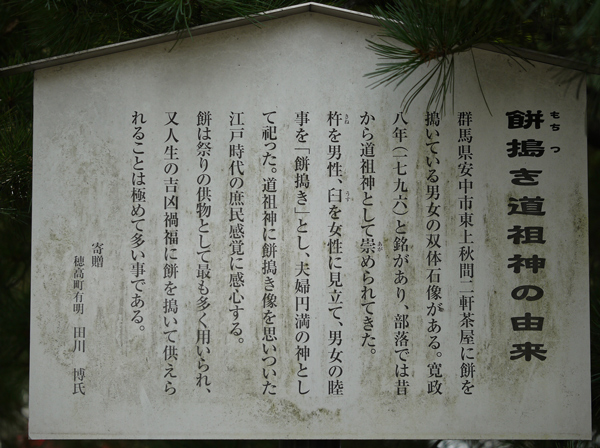 餅搗き道祖神の由来
群馬県安中市東上秋間二軒茶屋に餅を
搗いている男女の双体石像がある。寛政
八年(一七九六)と銘があり、部落では昔
から道祖神として崇められてきた。
杵を男性、臼を女性に見立て、男女の睦
事を「餅搗き」とし、夫婦円満の神とし
て祀った。道祖神に餅搗き像を思いついた
江戸時代の庶民感覚に感心する。
餅は祭りの供物として最も多く用いられ、
又人生の吉凶禍福に餅を搗いて供えら
れることは極めて多い事である。
寄贈
穂高町有明 田川 博氏